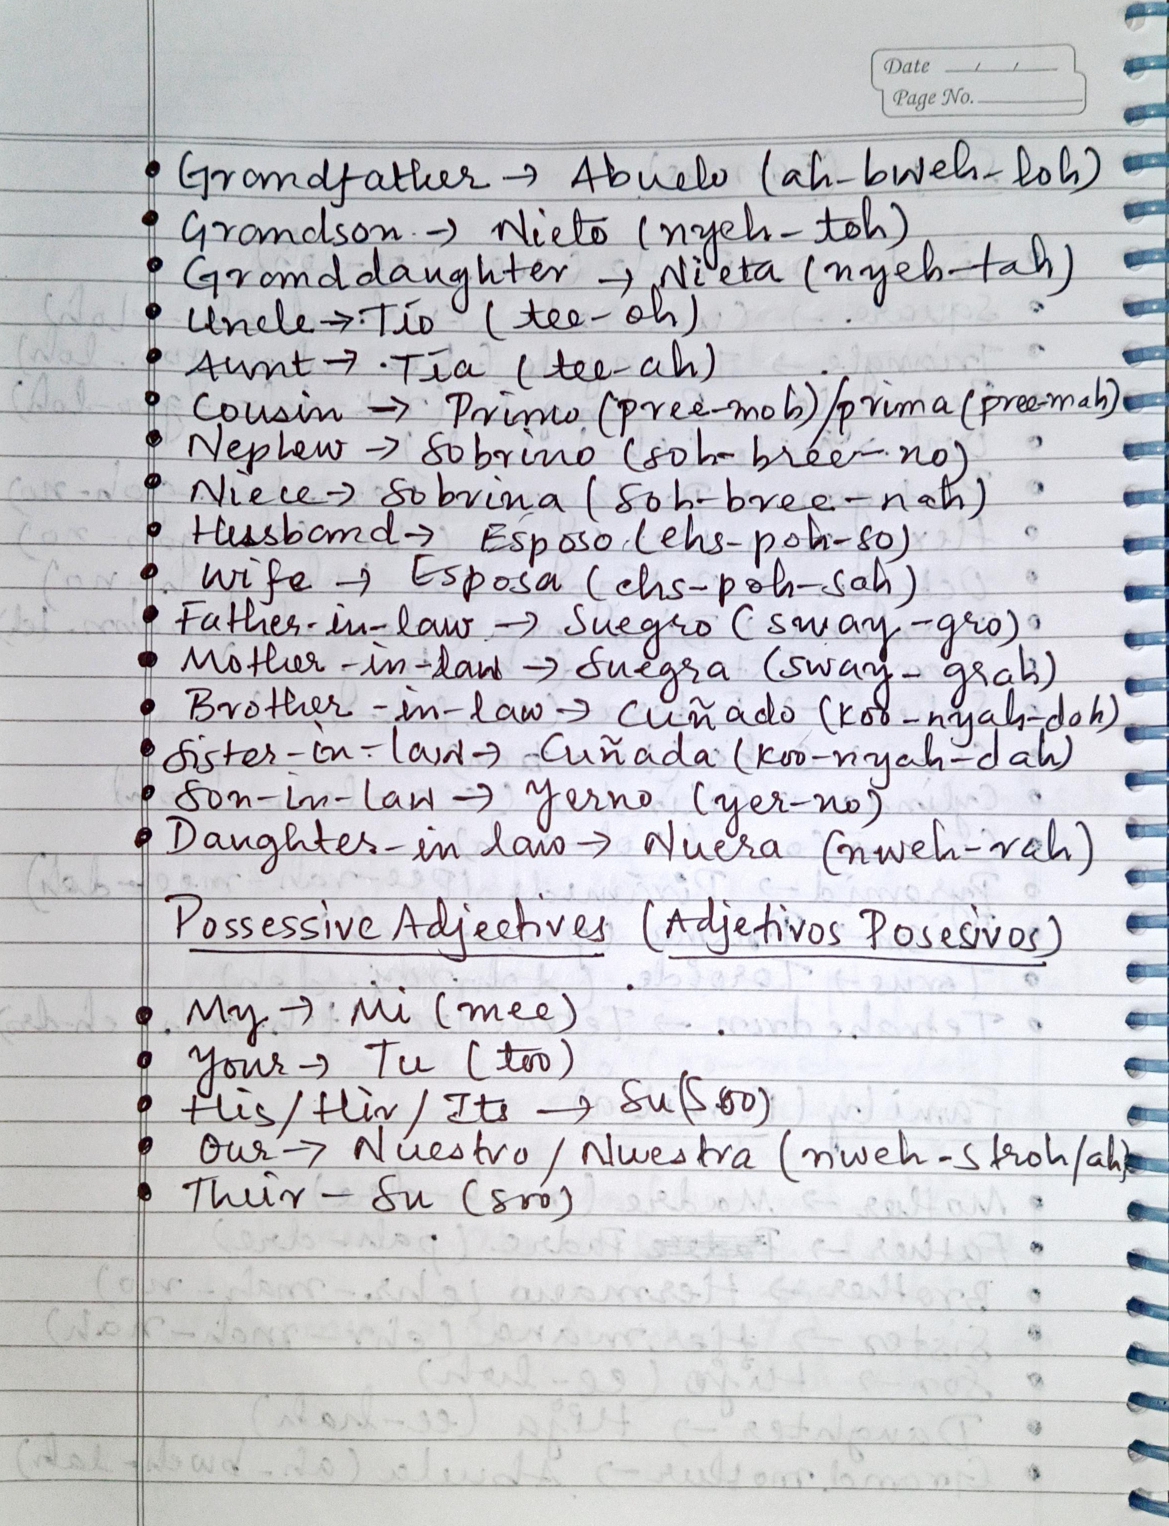 Date / /
Page No.
• Grandfather → Abuelo (ah-bweh-loh)
• Grandson → Nieto (nyeh-toh)
• Granddaughter → Nieta (nyeh-tah)
• Uncle → Tío (tee-oh)
• Aunt → Tía (tee-ah)
• Cousin → Primo (pree-moh)/prima (pree-mah)
• Nephew → Sobrino (soh-bree-no)
• Niece → Sobrina (soh-bree-nah)
• Husband → Esposo (ehs-poh-so)
• Wife → Esposa (ehs-poh-sah)
• Father-in-law → Suegro (sway-gro)
• Mother-in-law → Suegra (sway-grah)
• Brother-in-law → Cuñado (koo-nyah-doh)
• Sister-in-law → Cuñada (koo-nyah-dah)
• Son-in-law → Yerno (yer-no)
• Daughter-in law → Nuera (nweh-rah)
Possessive Adjectives (Adjetivos Posesivos)
• My → Mi (mee)
• Your → Tu (too)
• His/Hir/Its → Su (soo)
• Our → Nuestro/Nuestra (nweh-stroh/ah)
• Their - Su (soo)